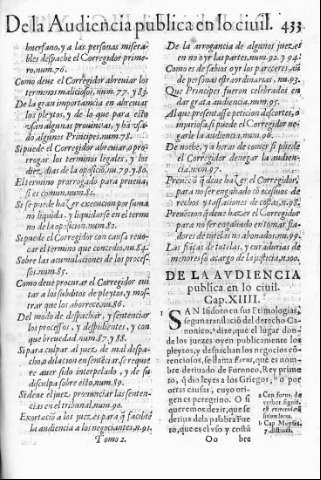 De la Audiencia publica en lo ciuil. 433
huerfano, y a las personas misera-
bles despache el Corregidor prime-
ro, num. 76.
Como deue el Corregidor abreuiar los
terminos maliciosos, num. 77. y 83.
De la gran importancia en abreuiar
los pleytos, y de lo que para esto
vsan algunas prouincias, y han vsa-
do algunos Principes, num. 78.
Si puede el Corregidor abreuiar, o pro-
rogar los terminos legales, y los
diez dias de la oposicion, nu. 79. y 80.
El termino prorogado para prueua,
si es comun, nu. 81.
Si se puede hazer execucion por suma
no liquida, y liquidarse en el termi-
no de la oposicion, num. 82.
Si puede el Corregidor con causa reuo-
car el termino que concedio, nu. 84.
Sobre las acumulaciones de los proces-
sos, num. 85.
Como deue procurar el Corregidor eui-
tar a los subditos de pleytos, y mos-
trar que los aborrece, nu. 86.
Del modo de despachar, y sentenciar
los processos, y despidientes, y con
que breuedad, num. 87. y 88.
Si para culpar al juez de mal despa-
cho a de lacion en sentẽciar, se requie
re auer sido interpelado, y de su
disculpa sobre ello, num. 89.
Si deue el juez pronunciar las senten-
cias en el tribunal, num. 90.
Exortaciõ a los juezes para q̃ facilitẽ
la audiencia a los negociantes, n. 91.
Tomo 2.
De la arrogancia de algunos juezes
en no oyr las partes, num. 92. y 94.
Como es de sabios oyr los pareceres, aũ
de personas estraordinarias, nu. 93.
Que Principes fueron celebrados en
dar grata audiencia, num. 95.
Al que presentasse peticion descortes, o
impertinente, si puede el Corregidor ne-
garle la audiencia, num. 96.
De noche, y a horas de comer si puede
el Corregidor denegar la audien-
cia, num. 97.
Preuẽciõ q̃ deue hazer el Corregidor
para no ser engañado cõ escusas de
rechos y tassaciones de costas, n. 98.
Preuẽcion q̃ deue hazer el Corregidor
para no ser engañado con fia-
dores de indeciso no abonados, nu. 99.
Las fianças de tutelas, y curadurias de
menores son a cargo de la justicia, n. 100.
DE LA AVDIENCIA
publica en lo ciuil.
Cap. XIIII.
SAN Isidoro en sus Etimologias,
segun translaciõ del derecho Ca-
nonico, dize, que el lugar don-
de los juezes oyen publicamente los
pleytos, y despachan los negocios cõ-
tenciosos, se llama Foro, que es nom-
bre deriuado de Foroneo, Rey prime
ro, q̃ dio leyes a los Griegos, o por
otras causas, cuyo ori-
gen es peregrino. O si
queremos dezir, que se
deriua de la palabra Fue
ro, que es el vso y costũ
Oo bre